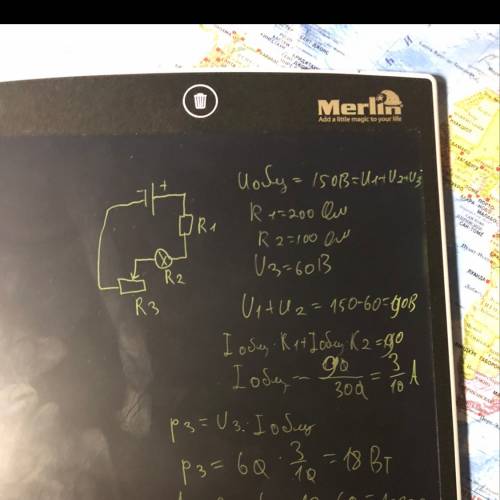 Merlin
Add a little magic to your life
Uобщ = 150В = U1+U2+U3
R1=200 Ом
R2=100 Ом
U3=60В
U1+U2 = 150-60=90В
Iобщ·R1+Iобщ·R2=90
Iобщ = 90/300 = 3/10 А
P3=U3·Iобщ
P3 = 60·3/10 = 18 Вт
+
R1
R2
R3